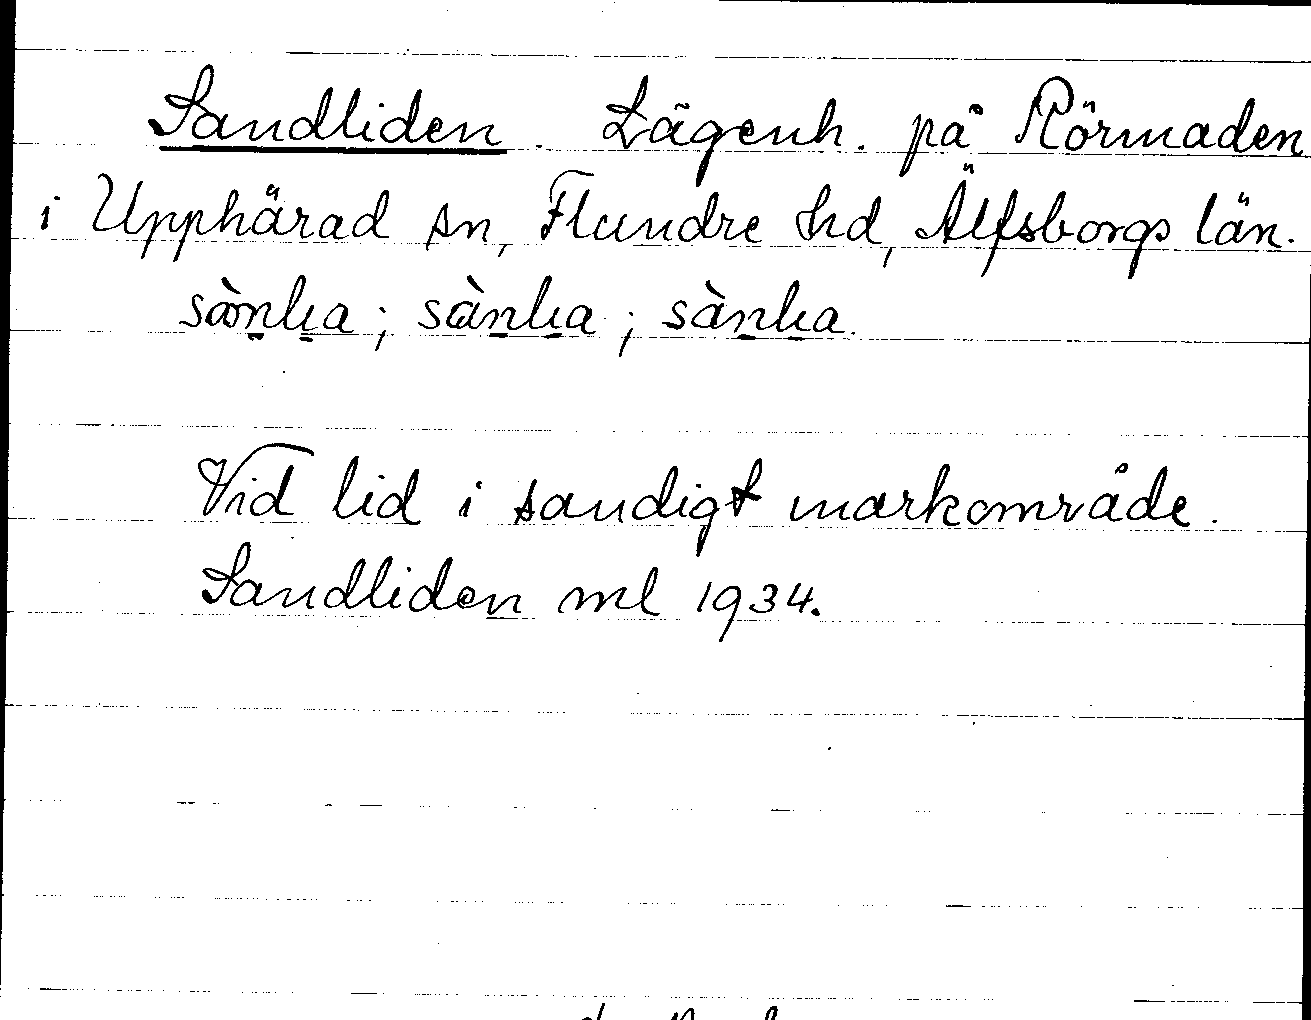 Sandliden. Lägenh. på Rörmaden
i Upphärad sn, Flundre hd, Älfsborgs län.
Vid lid i sandigt markområde.
Sandliden ml 1934.